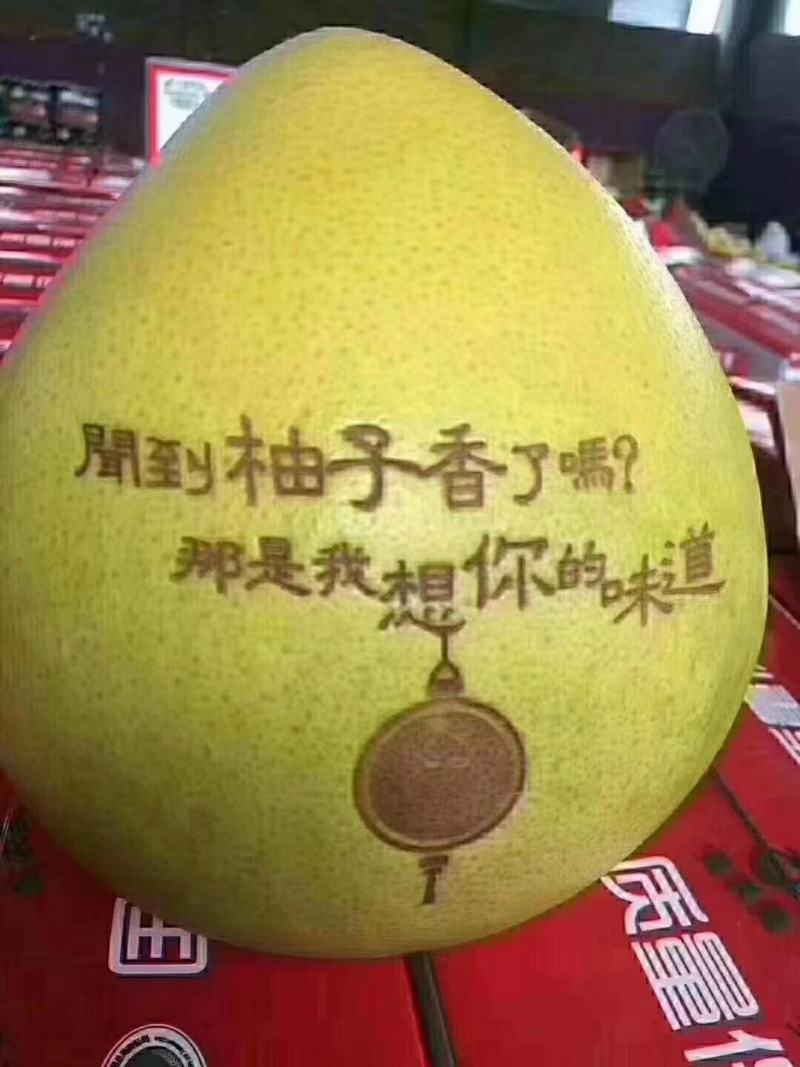 聞到柚子香了嗎?
那是我想你的味道
质量